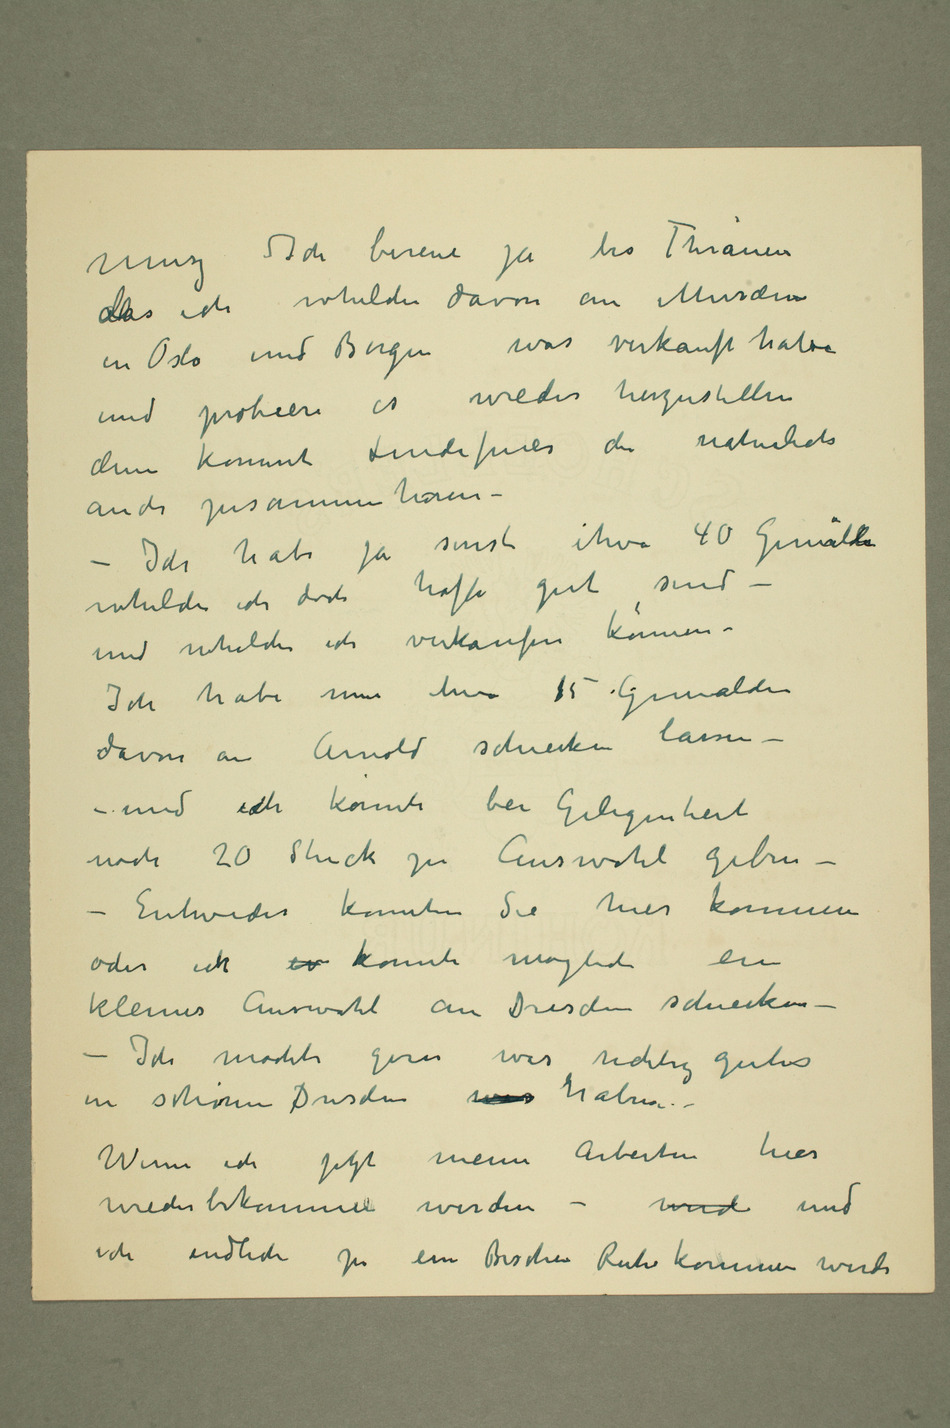 Ich bereue ja bis Thränen
das ich whelche davon an Museen
in Oslo und Bergen was verkauft habe
und probiere es wieder herzustellen
denn kommt Lindefries die naturlich
auch zusammen hören –
– Ich habe ja sonst etwa 40 Gemälde
whelche ich doch hoffe gut sind –
und whelche ich verkaufen können –
Ich habe nun etwa 15 Gemälden
davon an Arnold schicken lassen –
– und ich könnte bei Gelegenheit
noch 20 Stuck zu Auswahl geben –
– Entweder konnten Sie hier kommen
oder ich konnte moglich ein
kleines Auswahl an Dresden schicken –
– Ich mochte gern was richtig gutes
in schönen Dresden haben. –
Wenn ich jetzt meine Arbeiten hier
wiederbekommen werden – und
ich endlich zu ein Bischen Ruhe kommen werde